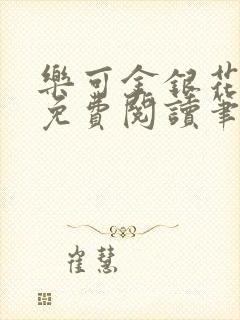 樂可金銀花
免費閱讀筆
崔慧